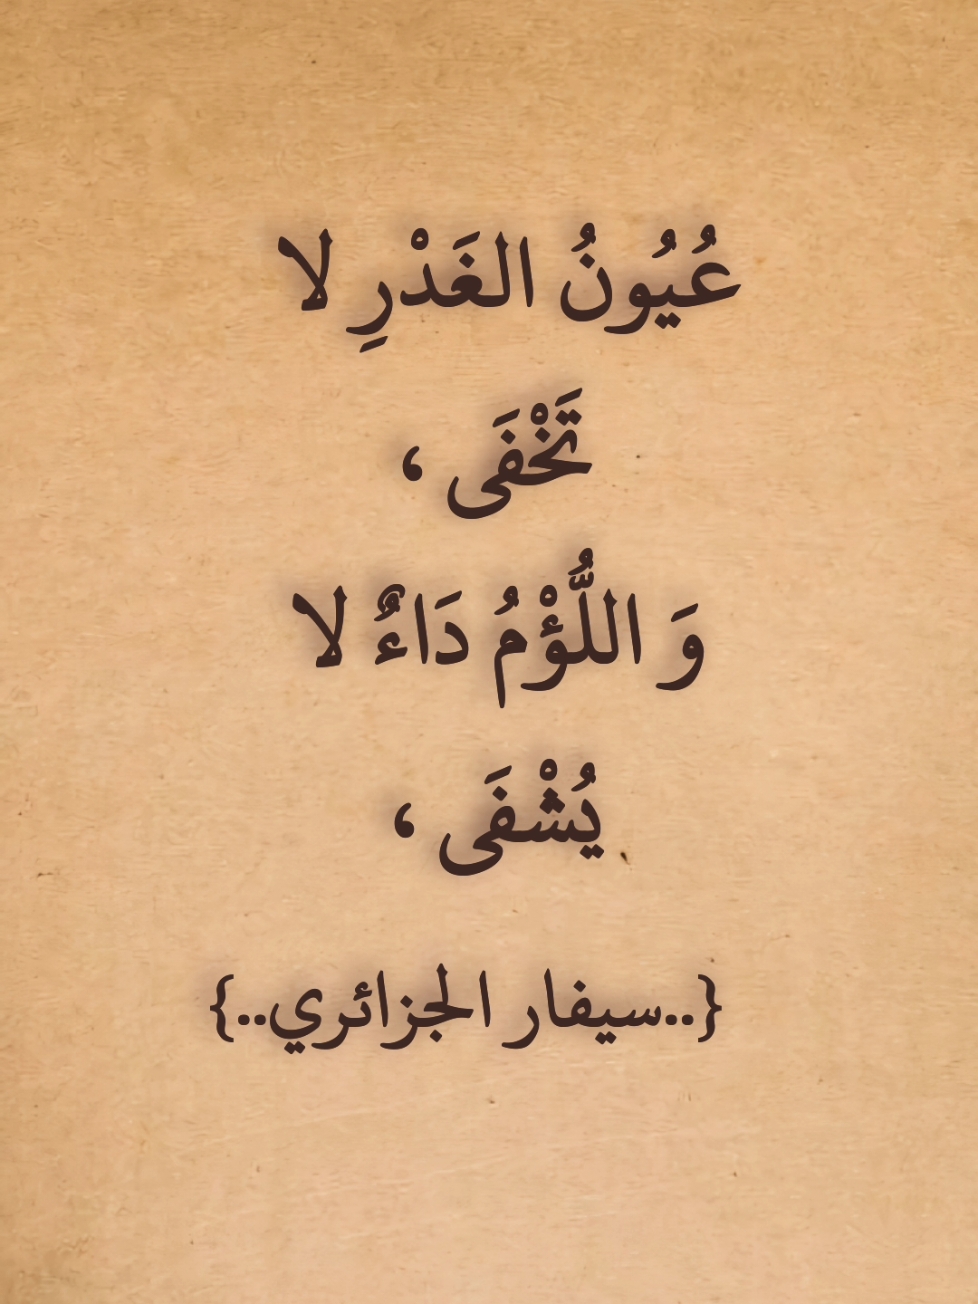 عُيُونُ الغَدْرِ لا
تَخْفَى ،
وَ اللُّؤْمُ دَاءٌ لا
يُشْفَى ،
{..سيفار الجزائري..}